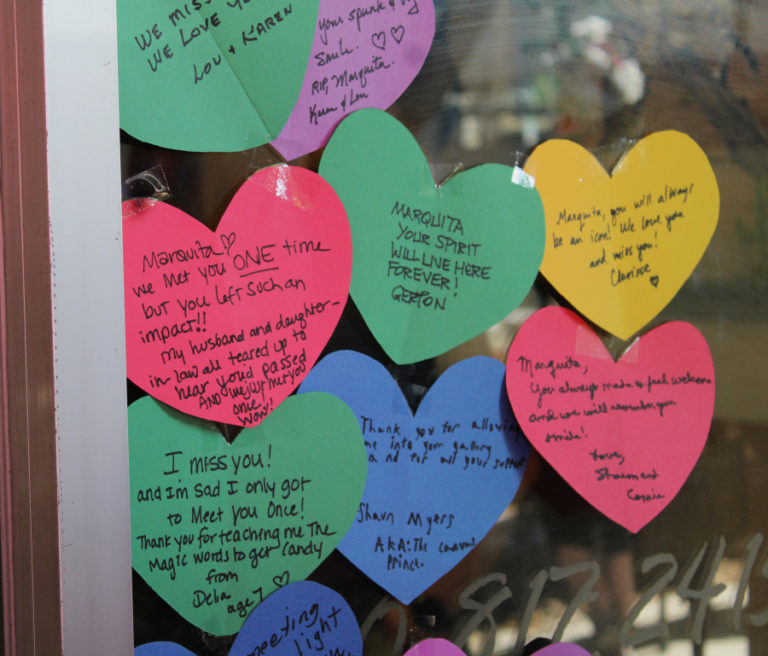 WE MISS
WE LOVE YO
LOU & KAREN
your spunk & big
smile.
RIP, Marquita.
Karen & Lou
MARQUITA
YOUR SPIRIT
WILL LIVE HERE
FOREVER!
GERTON
Marquita, you will always
be an icon! We love you
and miss you!
Clarisse
Marquita
we Met you ONE time
but you left such an
impact!!
my husband and daughter-
in-law all teared up to
hear you'd passed
AND we just met you
once
Wow!
Marquita,
You always made us feel welcome
and we will remember your
smile!
Love,
and
I MISS YOU!
and I'm Sad I only got
to Meet you Once!
Thank you for teaching me The
Magic words to get candy
from
Delia
age 7
Thank you for allowing
me into your gallery
and for all your support
Shawn Myers
AKA: The
Prince.
meeting
light
817 241